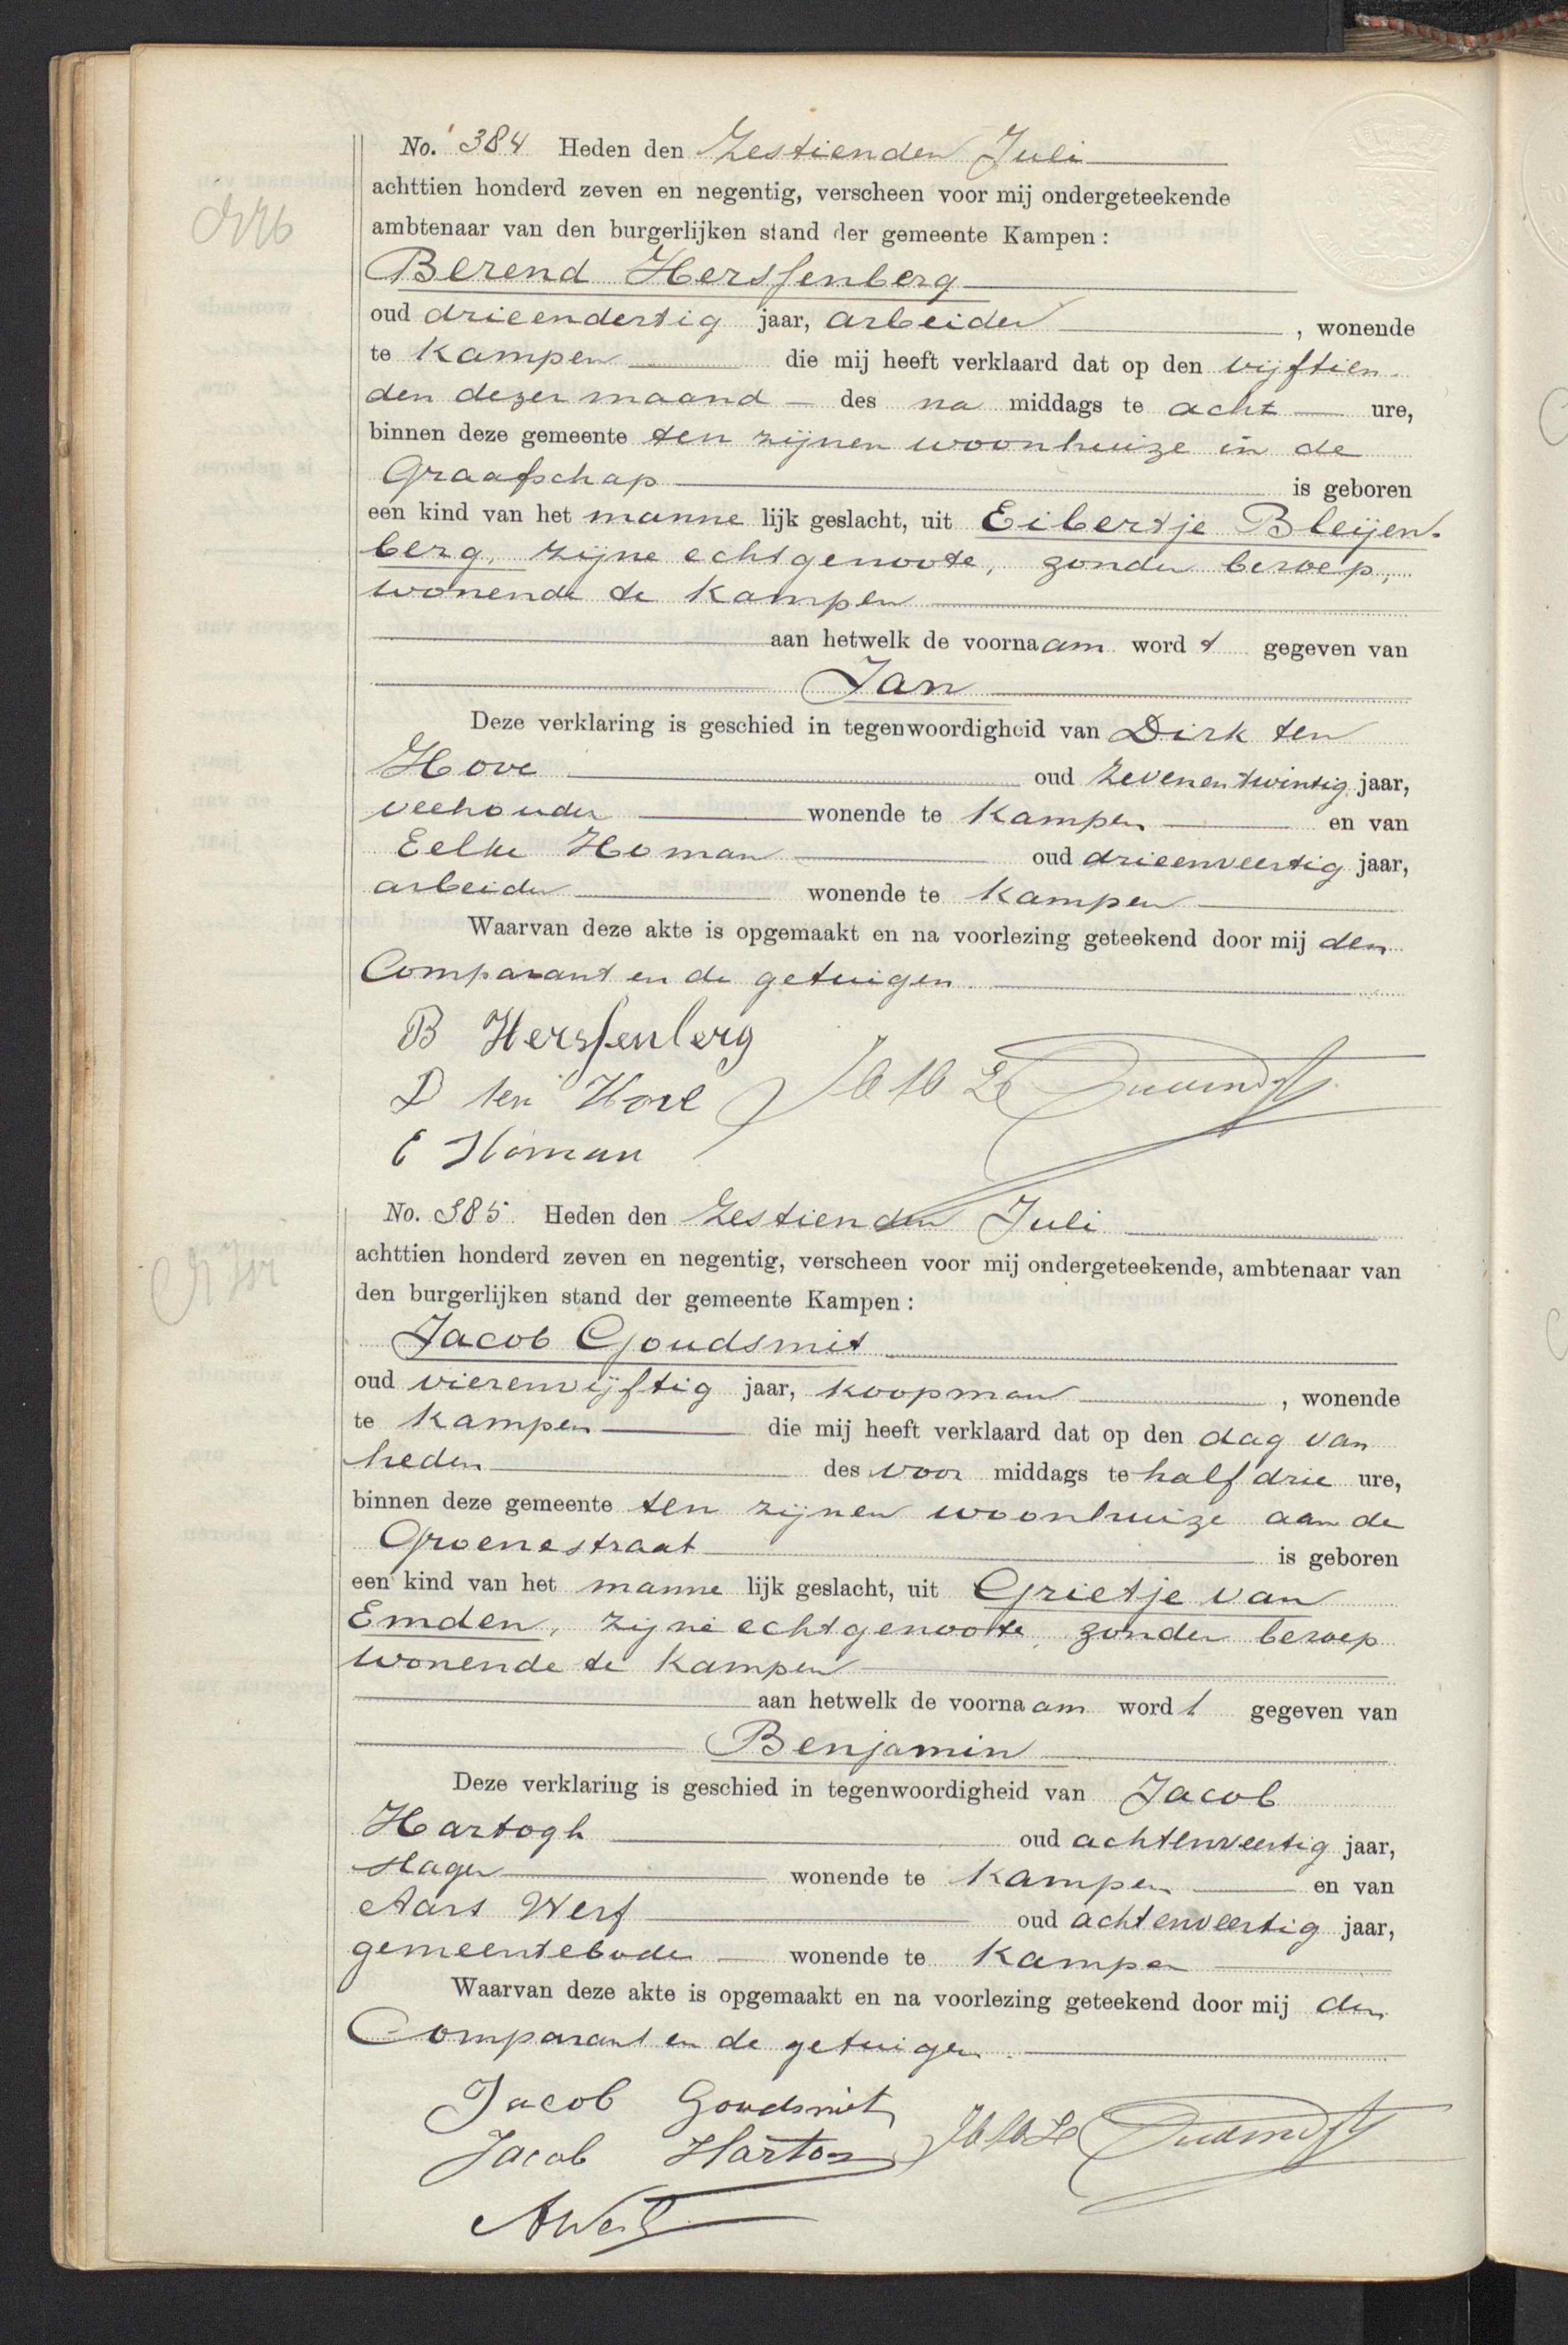 No. 384 Heden den Zestienden Juli
achttien honderd zeven en negentig, verscheen voor mij ondergeteekende
ambtenaar van den burgerlijken stand der gemeente Kampen:
Berend Herssenberg
oud drieendertig jaar, arbeider, wonende
te Kampen die mij heeft verklaard dat op den vijftien-
den dezer maand des na middags te acht ure,
binnen deze gemeente ten zijnen woonhuize in de
Graafschap is geboren
een kind van het manne lijk geslacht, uit Eibertje Bleijen-
berg, zijne echtgenoote, zonder beroep,
wonende te Kampen
aan hetwelk de voornaam wordt gegeven van
Jan
Deze verklaring is geschied in tegenwoordigheid van Dirk ten
Hove oud zevenentwintig jaar,
veehouder wonende te Kampen en van
Eelke Homan oud drieenveertig jaar,
arbeider wonende te Kampen
Waarvan deze akte is opgemaakt en na voorlezing geteekend door mij den
Comparant en de getuigen.
B Herssenberg
D ten Hove
E Homan
No. 385 Heden den Zestienden Juli
achttien honderd zeven en negentig, verscheen voor mij ondergeteekende, ambtenaar van
den burgerlijken stand der gemeente Kampen:
Jacob Goudsmit
oud vierenvijftig jaar, koopman, wonende
te Kampen die mij heeft verklaard dat op den dag van
heden des voor middags te half drie ure,
binnen deze gemeente ten zijnen woonhuize aan de
Groenestraat is geboren
een kind van het manne lijk geslacht, uit Grietje van
Emden, zijne echtgenoote, zonder beroep
wonende te Kampen
aan hetwelk de voornaam wordt gegeven van
Benjamin
Deze verklaring is geschied in tegenwoordigheid van Jacob
Hartogh oud achtenveertig jaar,
slager wonende te Kampen en van
Aart Werf oud achtenveertig jaar,
gemeentebode wonende te Kampen
Waarvan deze akte is opgemaakt en na voorlezing geteekend door mij den
Comparant en de getuigen.
Jacob Goudsmit
Jacob Hartog
A Werf